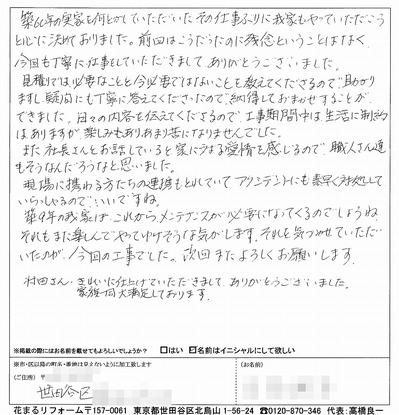 築60年の実家を何とかしていただいたその仕事ふりに我家もやっていただこう
と心に決めておりました。前回はこうだったのに残念ということはなく、
今回も丁寧に仕事をしていただきましてありがとうございました。
見積りでは必要なことと今必要ではないことを教えてくださるので、助かり
ますし疑問にも丁寧に答えてくださったので、納得しておまかせすることが
できました。日々の内容を伝えてくださるので、工事期間中は生活に制約
はありますが、楽しみもありあまり苦になりませんでした。
また社長さんとお話していると家に対する愛情を感じるので、職人さん達
もそうなんだろうなと思いました。
現場に携わる方たちの連携もとれていてアクシデントにも素早く対処して
いらっしゃるので、いいですね。
築9年の我家は、これからメンテナンスが必要になってくるのでしょうね
それもまた楽しんでやってゆけそうな気がします。それを気づかせていただ
いたのが、今回の工事でした。次回またよろしくお願いします。
村田さん、きれいに仕上げていただきまして、ありがとうございました。
家族一同大満足しております。
※掲載の際にはお名前を載せてもよろしいでしょうか? □はい ☑名前はイニシャルにして欲しい
※市・区以降の町名・番地は見えないように加工致します
(ご住所) 〒
(お名前)
世田谷区
花まるリフォーム 〒157-0061 東京都世田谷区北烏山 1-56-24 ☎0120-870-346 代表:高橋良一